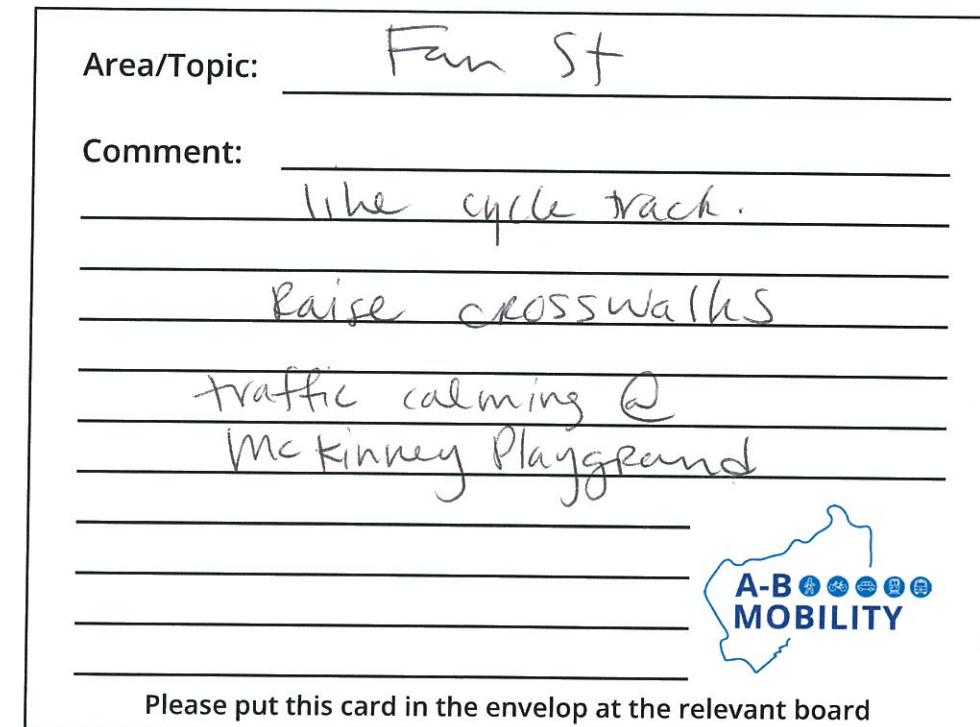 Area/Topic: Fan St
Comment:
like cycle track.
Raise crosswalks
traffic calming @
McKinney Playground
A-B
MOBILITY
Please put this card in the envelop at the relevant board